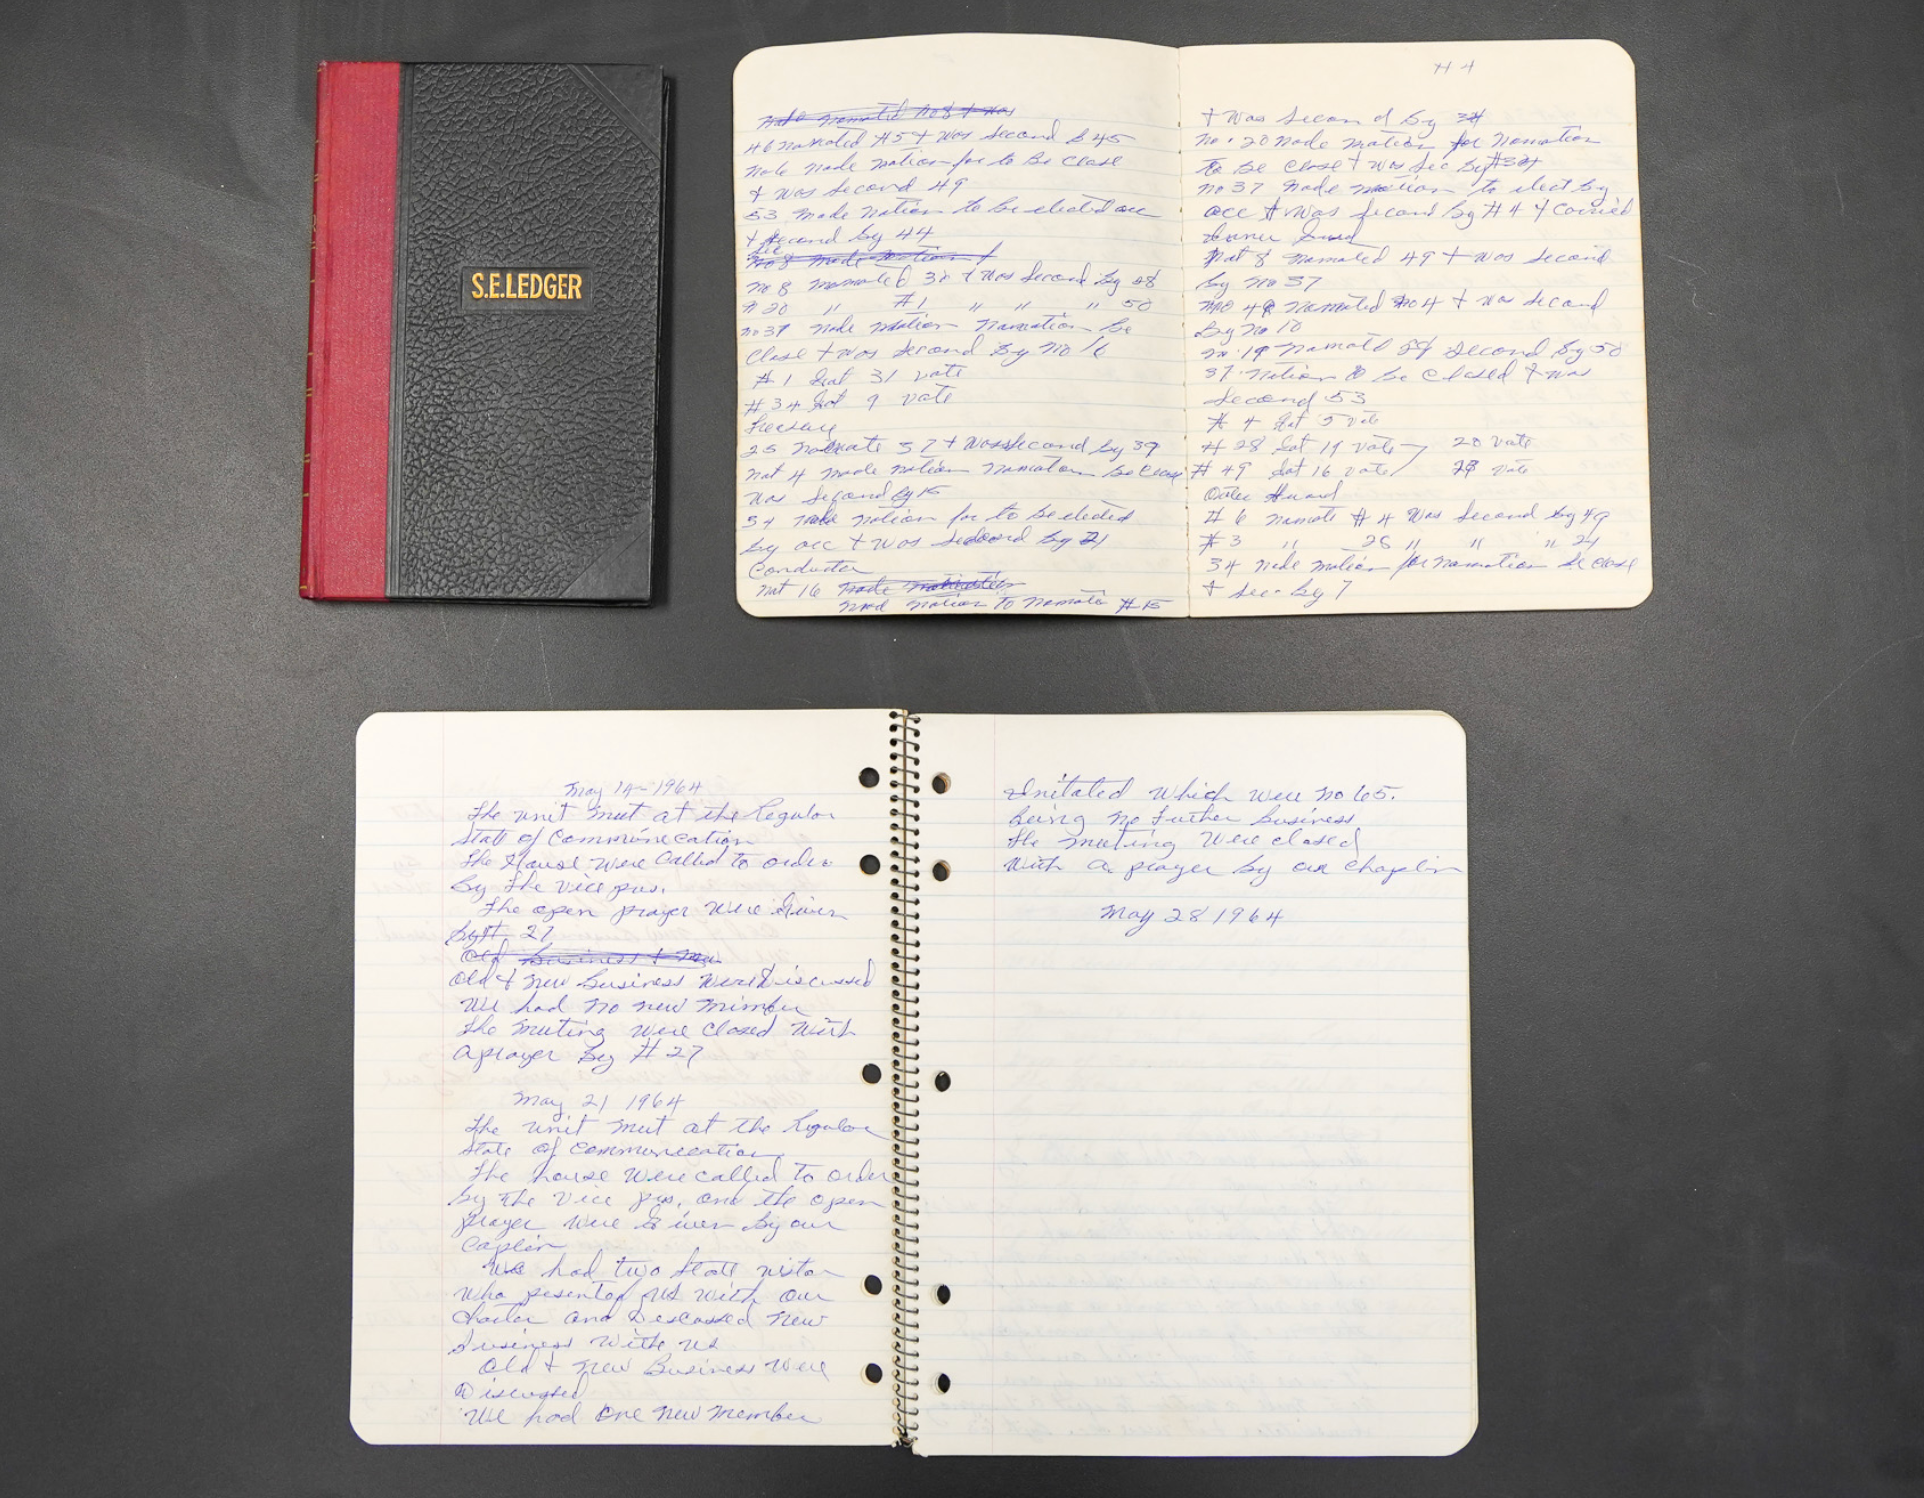 S.E.LEDGER
46 nomated #5 + was second by 45
note made motion for to be close
+ was second 49
53 made motion to be elected acc
+ second by 44
sec
no 8 made motion
no 8 nomated 34 + was second by 28
# 20 " #1 " " " 50
no 37 made motion nomation be
close + was second by no 16
# 1 Got 31 vote
# 34 Got 9 vote
25 nomate 37 + was second by 39
nat 4 made motion nomation be close
was second by 15
54 made motion for to be elected
by acc + was second by 21
Conductor
nat 16
mad motion to nomate #15
# 4
+ was second by 34
no. 20 made motion for nomation
to be close + was sec by #34
no 37 made motion to elect by
acc + was second by # 44 carried
nat 8 nomated 49 + was second
by no 37
nomated no 4 + was second
by no 10
no. 19 nomate second by 50
37 motion to be closed + was
second 53
# 4 Got 5 vote
# 28 Got 19 vote 20 vote
# 49 Got 16 vote 28 vote
Outer Guard
# 6 nomate # 4 was second by 49
# 3 " 28 " " " 21
34 made motion for nomation be close
+ sec. by 7
May 14-1964
The unit meet at the Regular
State of Communication
The House were called to order
by the vice pres.
The open prayer were Given
by # 27
Old Business + New
Old + new Business were Discussed
we had no new mimber
the meeting were closed with
a prayer by # 27
May 21 1964
The unit meet at the Regular
State of Communication.
The house were called to order
by the vice pres. and the open
prayer were Given by our
Caplin
We had two State vistor
who pesented us with our
charter and Descussed new
business with us
Old + new Business were
Discussed
We had one new member
Initated which were no 65.
being no futher business
the meeting were closed
with a prayer by our chaplin
May 28 1964